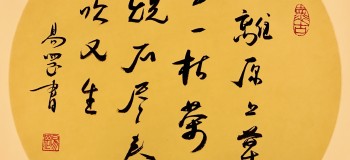 離原上草
一枯榮
燒不盡春
吹又生
易學書